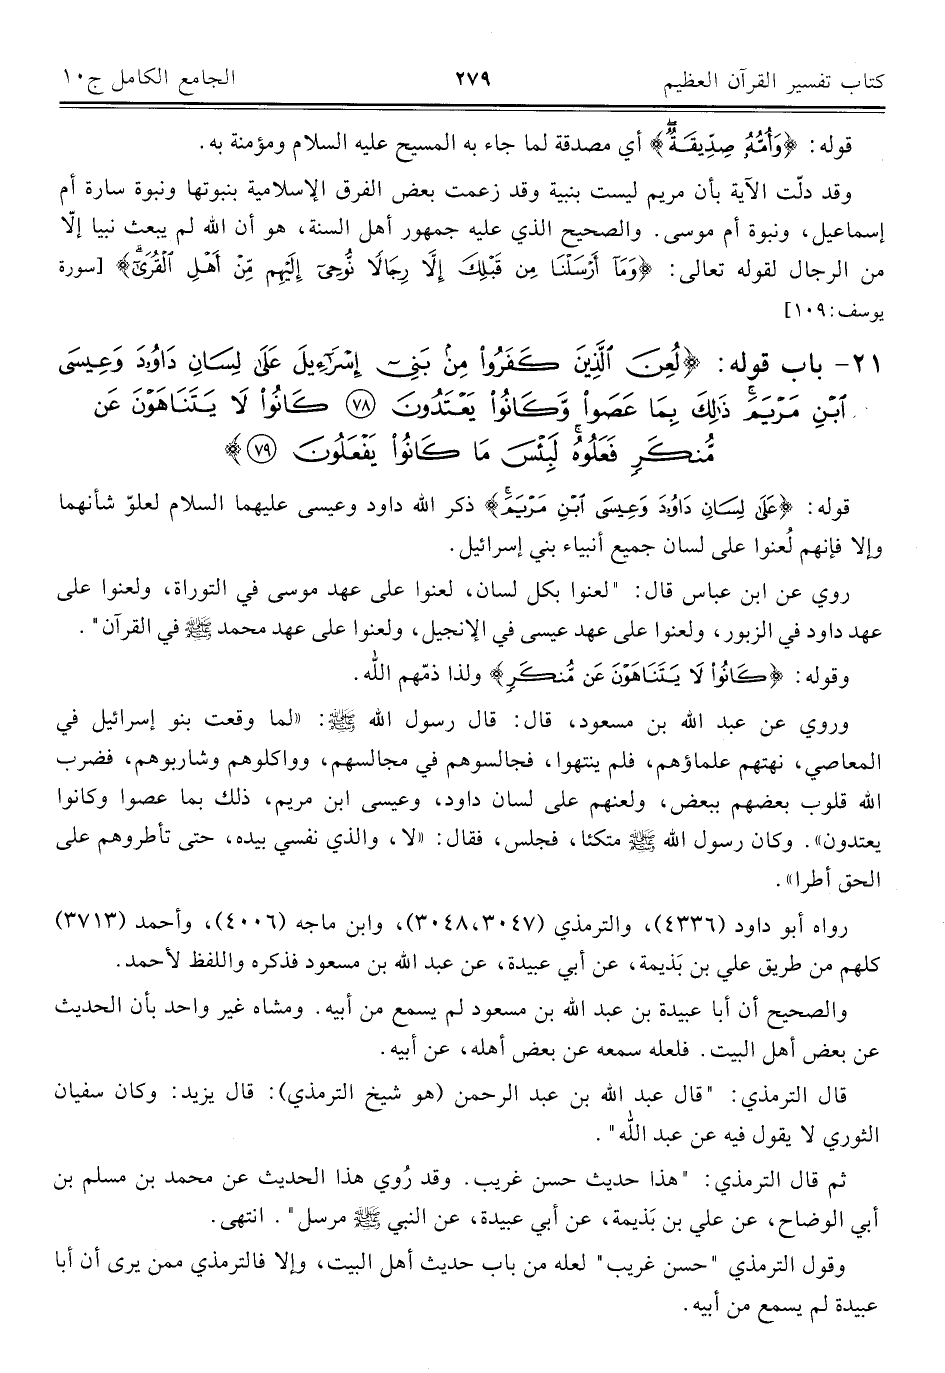 كتاب تفسير القرآن العظيم ٢٧٩ الجامع الكامل ج١٠
قوله: ﴿وَأُمُّهُۥ صِدِّيقَةٌۖ﴾ أي مصدقة لما جاء به المسيح عليه السلام ومؤمنة به.
وقد دلّت الآية بأن مريم ليست بنبية وقد زعمت بعض الفرق الإسلامية بنبوتها ونبوة سارة أم
إسماعيل، ونبوة أم موسى. والصحيح الذي عليه جمهور أهل السنة، هو أن الله لم يبعث نبيا إلّا
من الرجال لقوله تعالى: ﴿وَمَآ أَرْسَلْنَا مِن قَبْلِكَ إِلَّا رِجَالًا نُّوحِىٓ إِلَيْهِم مِّنْ أَهْلِ ٱلْقُرَىٰٓۗ﴾ [سورة
يوسف: ١٠٩]
٢١- باب قوله: ﴿لُعِنَ ٱلَّذِينَ كَفَرُوا۟ مِنۢ بَنِىٓ إِسْرَٰٓءِيلَ عَلَىٰ لِسَانِ دَاوُۥدَ وَعِيسَى
ٱبْنِ مَرْيَمَۚ ذَٰلِكَ بِمَا عَصَوا۟ وَّكَانُوا۟ يَعْتَدُونَ ٧٨ كَانُوا۟ لَا يَتَنَاهَوْنَ عَن
مُّنكَرٍ فَعَلُوهُۚ لَبِئْسَ مَا كَانُوا۟ يَفْعَلُونَ ٧٩﴾
قوله: ﴿عَلَىٰ لِسَانِ دَاوُۥدَ وَعِيسَى ٱبْنِ مَرْيَمَۚ﴾ ذكر الله داود وعيسى عليهما السلام لعلوّ شأنهما
وإلا فإنهم لُعنوا على لسان جميع أنبياء بني إسرائيل.
روي عن ابن عباس قال: "لعنوا بكل لسان، لعنوا على عهد موسى في التوراة، ولعنوا على
عهد داود في الزبور، ولعنوا على عهد عيسى في الإنجيل، ولعنوا على عهد محمد ﷺ في القرآن".
وقوله: ﴿كَانُوا۟ لَا يَتَنَاهَوْنَ عَن مُّنكَرٍ﴾ ولذا ذمّهم الله.
وروي عن عبد الله بن مسعود، قال: قال رسول الله ﷺ: «لما وقعت بنو إسرائيل في
المعاصي، نهتهم علماؤهم، فلم ينتهوا، فجالسوهم في مجالسهم، وواكلوهم وشاربوهم، فضرب
الله قلوب بعضهم ببعض، ولعنهم على لسان داود، وعيسى ابن مريم، ذلك بما عصوا وكانوا
يعتدون». وكان رسول الله ﷺ متكئا، فجلس، فقال: «لا، والذي نفسي بيده، حتى تأطروهم على
الحق أطرا».
رواه أبو داود (٤٣٣٦)، والترمذي (٣٠٤٧، ٣٠٤٨)، وابن ماجه (٤٠٠٦)، وأحمد (٣٧١٣)
كلهم من طريق علي بن بَذيمة، عن أبي عبيدة، عن عبد الله بن مسعود فذكره واللفظ لأحمد.
والصحيح أن أبا عبيدة بن عبد الله بن مسعود لم يسمع من أبيه. ومشاه غير واحد بأن الحديث
عن بعض أهل البيت. فلعله سمعه عن بعض أهله، عن أبيه.
قال الترمذي: "قال عبد الله بن عبد الرحمن (هو شيخ الترمذي): قال يزيد: وكان سفيان
الثوري لا يقول فيه عن عبد الله".
ثم قال الترمذي: "هذا حديث حسن غريب. وقد رُوي هذا الحديث عن محمد بن مسلم بن
أبي الوضاح، عن علي بن بَذيمة، عن أبي عبيدة، عن النبي ﷺ مرسل". انتهى.
وقول الترمذي "حسن غريب" لعله من باب حديث أهل البيت، وإلا فالترمذي ممن يرى أن أبا
عبيدة لم يسمع من أبيه.